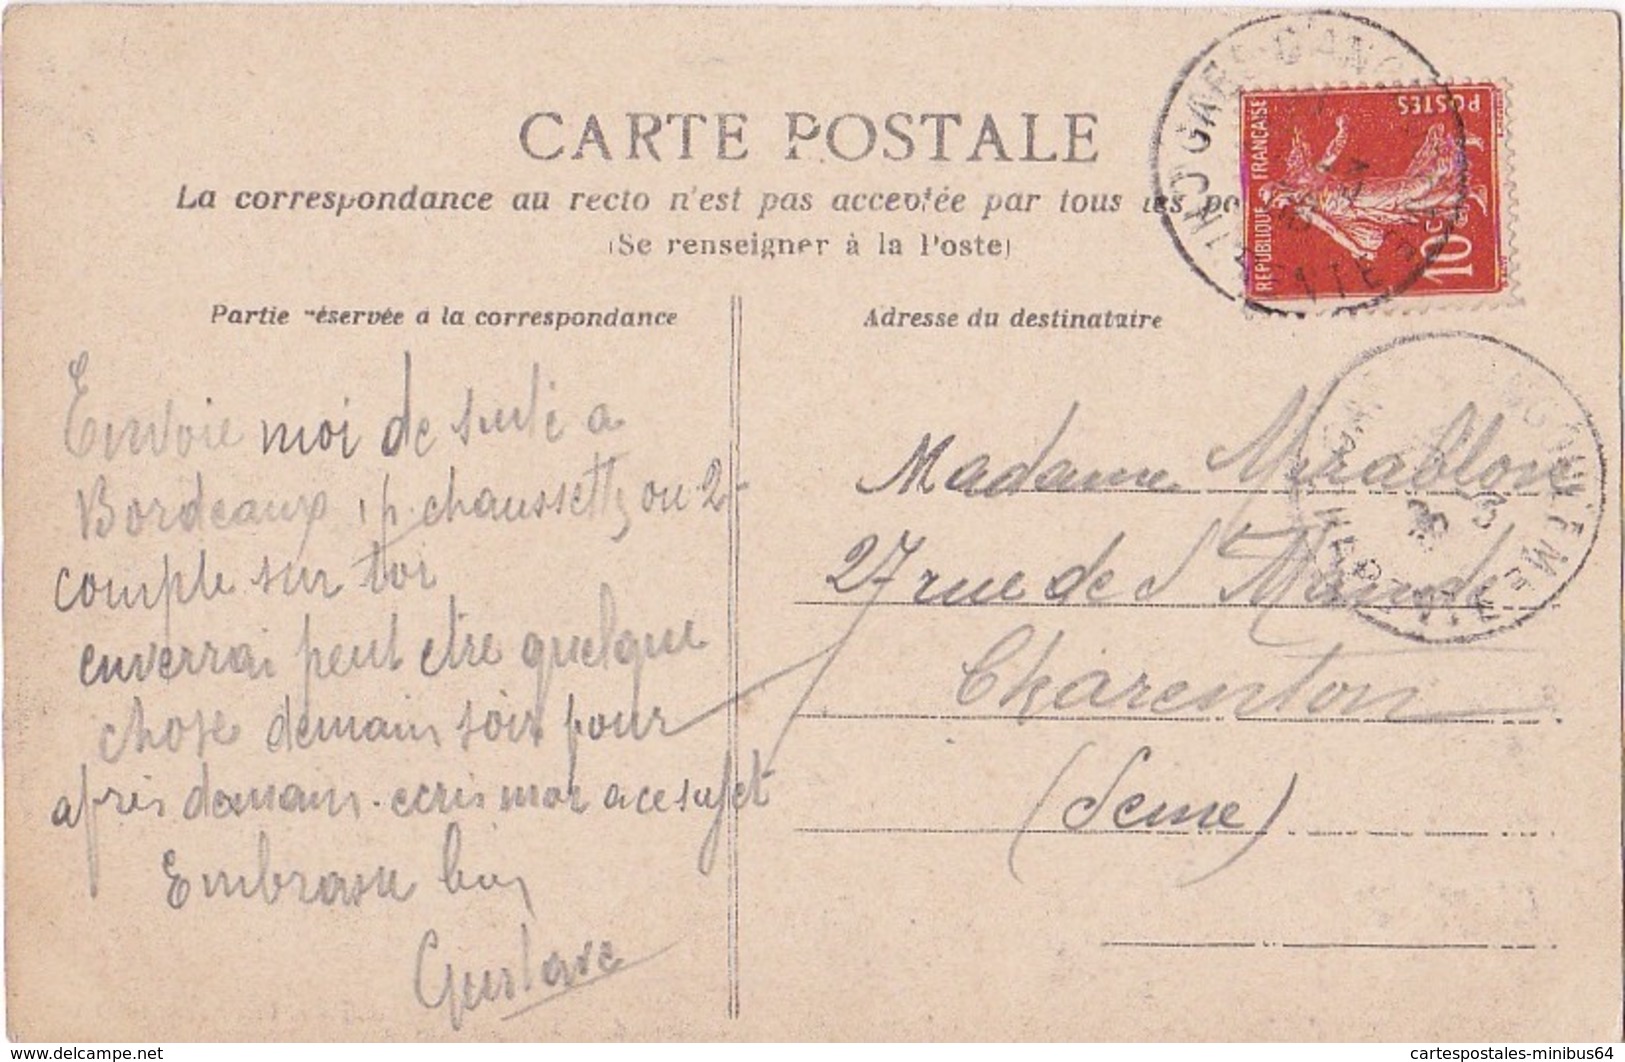 CARTE POSTALE
La correspondance au recto n'est pas acceptée par tous les
(Se renseigner à la Poste)
Partie réservée à la correspondance
Adresse du destinataire
REPUBLIQUE FRANÇAISE
POSTES
10c
GARE D'ANG
ANGOULEME
Envoie moi de suite a
Bordeaux 1 p. chaussettes ou 2
compte sur toi
enverrai peut etre quelque
chose demain soir pour
après demain. ecris moi a ce sujet
Embrasse bien
Gustave
Madame Mirablon
27 rue de St Mandé
Charenton
(Seine)
delcampe.net
cartespostales-minibus64